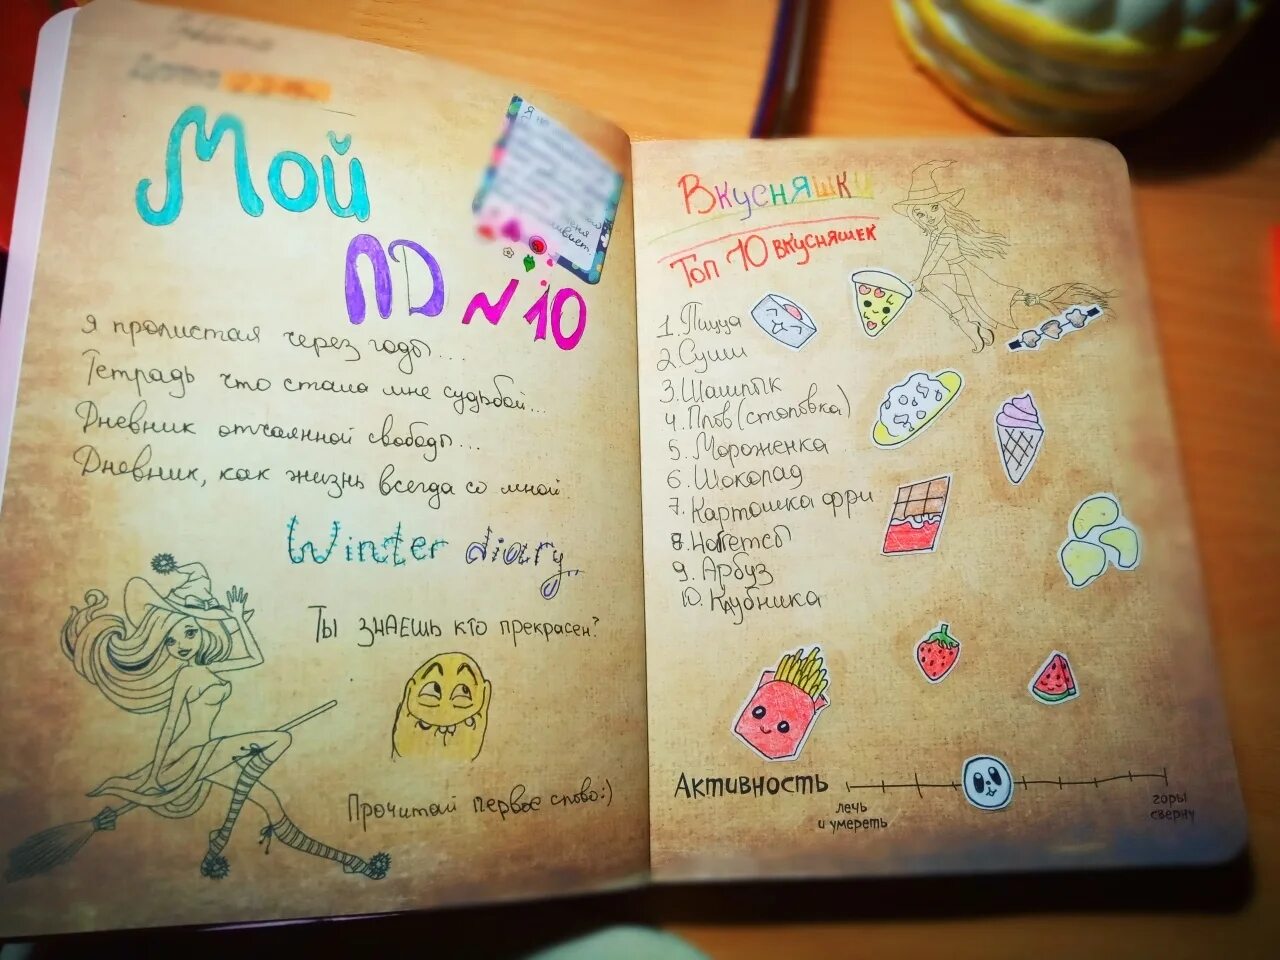 Мой
ЛД №10
Я пролистая через годы...
Тетрадь что стала мне судьбой...
Дневник отчаянной свободы...
Дневник, как жизнь всегда со мной.
Winter diary
Ты знаешь кто прекрасен?
Прочитай первое слово:)
Вкусняшки
Топ 10 вкусняшек
1. Пицца
2. Суши
3. Шашлык
4. Плов (столовка)
5. Мороженка
6. Шоколад
7. Картошка фри
8. Нагетсы
9. Арбуз
10. Клубника
Активность
лечь и умереть
горы сверну